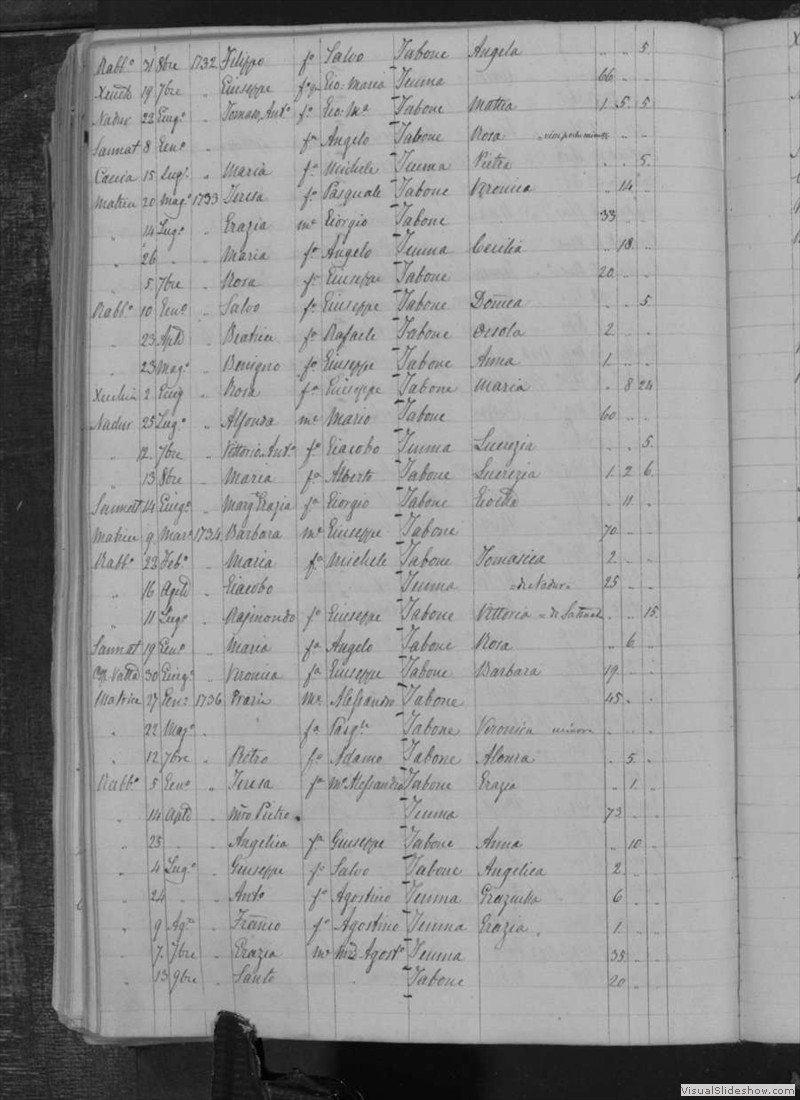 Rabb.o 31 8bre 1732 Filippo f.o Salvo Tabone Angela .. .. 5
Xeuch 19 7bre .. Giuseppe Gio: Maria Tenma 66 .. ..
Nadur 22 Giug.o .. Tomaso Ant.o f.o Gio: M.a Tabone Mattia 1 5 5
Sannat 8 Gen.o .. f.a Angelo Tabone Rosa .. ..
Caccia 15 Lug.o .. Maria f.a Michele Tenma Pietra .. .. 5
Matrice 20 Mag.o 1733 Teresa f.a Pasquale Tabone Veronica .. 14 ..
.. 14 Lug.o .. Grazia m.e Giorgio Tabone 33 .. ..
.. 26 .. .. Maria f.a Angelo Tenma Cecilia .. 18 ..
.. 5 7bre .. Rosa f.a Giuseppe Tabone 20 .. ..
Rabb.o 10 Gen.o .. Salvo f.o Giuseppe Tabone Domca .. .. 5
.. 23 Aple .. Beatrice f.a Rafaele Tabone Orsola 2 .. ..
.. 23 Mag.o .. Benigno f.o Giuseppe Tabone Anna 1 .. ..
2 Giug .. Rosa f.a Giuseppe Tabone Maria .. 8 24
Nadur 25 Lug.o .. Alfonza m.e Mario Tabone 60 .. ..
.. 12 7bre .. Vittorio Ant.o f.o Giacobo Tenma Lucrezia .. .. 5
.. 13 8bre .. Maria f.a Alberto Tabone Lucrezia 1 2 6
Sannat 14 Giug.o .. Marg.a Grazia f.a Giorgio Tabone .. 11 ..
Matrice 9 Mar.o 1734 Barbara m.e Giuseppe Tabone 70 .. ..
Rabb.o 22 Feb.o .. Maria f.a Michele Tabone Tomasica 2 .. ..
.. 16 Aple .. Giacobo Tenma = di Nadur = 25 .. ..
.. 11 Lug.o .. Rajmondo f.o Giuseppe Tabone Vittoria .. .. 15
Sannat 19 Gen.o .. Maria f.a Angelo Tabone Rosa .. 6 ..
30 Giug.o .. Veronica f.a Giuseppe Tabone Barbara 19 .. ..
Matrice 27 Gen.o 1736 m.e Alessandro Tabone 45 .. ..
.. 22 Mag.o .. f.a Pasq.le Tabone Veronica minore .. .. ..
.. 12 7bre .. Pietro f.o Adamo Tabone Alonza .. 5 ..
Rabb.o 5 Gen.o .. Teresa f.a M.o Alessandro Tabone Grazia .. 1 ..
.. 14 Aple Mro Pietro Tenma 73 .. ..
.. 25 .. Angelica f.a Giuseppe Tabone Anna .. 10 ..
.. 4 Lug.o .. Giuseppe f.o Salvo Tabone Angelica 2 .. ..
.. 24 .. .. Ant.o f.o Agostino Tenma Grazulla 6 .. ..
.. 9 Ag.to .. Franco f.o Agostino Tenma Grazia 1 .. ..
.. 7 7bre .. Grazia m.e Mro Agost.o Tenma 35 .. ..
.. 13 9bre .. Santo Tabone 20 .. ..
VisualSlideshow.com